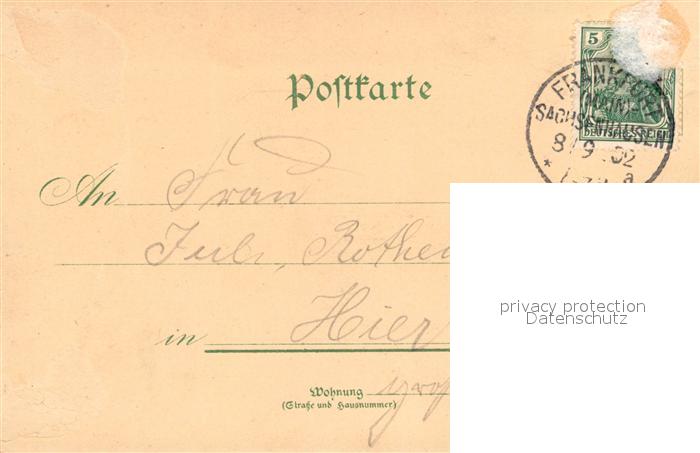 5
Postkarte
FRANKFURT
(MAIN)
SACHSENHAUSEN
DEUTSCHES REICH
8/9 02
* a
An Frau
Rothen
privacy protection
Datenschutz
in Hier
Wohnung
(Straße und Hausnummer)